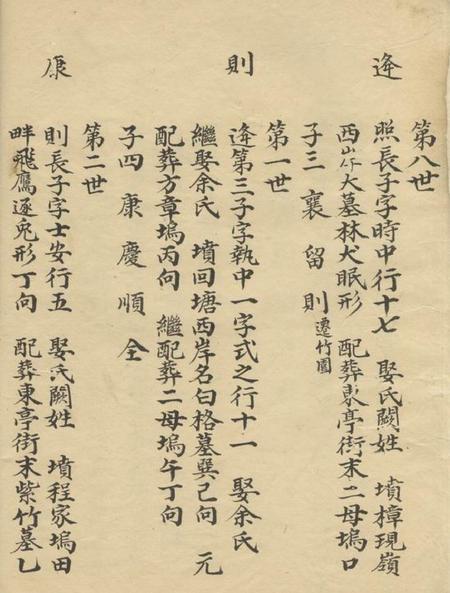 第八世
逄
照長子字時中行十七 娶氏闕姓 墳樟現嶺
西山仵大墓林犬眠形 配葬東亭街末二母塢口
子三 襄 留 則遷竹園
第一世
則
逄第三子字執中一字式之行十一 娶余氏
繼娶余氏 墳回塘西岸名曰格墓巽己向 元
配葬方章塢丙向 繼配葬二母塢午丁向
子四 康 慶 順 全
第二世
康
則長子字士安行五 娶氏闕姓 墳程家塢田
畔飛鷹逐兎形丁向 配葬東亭街末紫竹墓乚